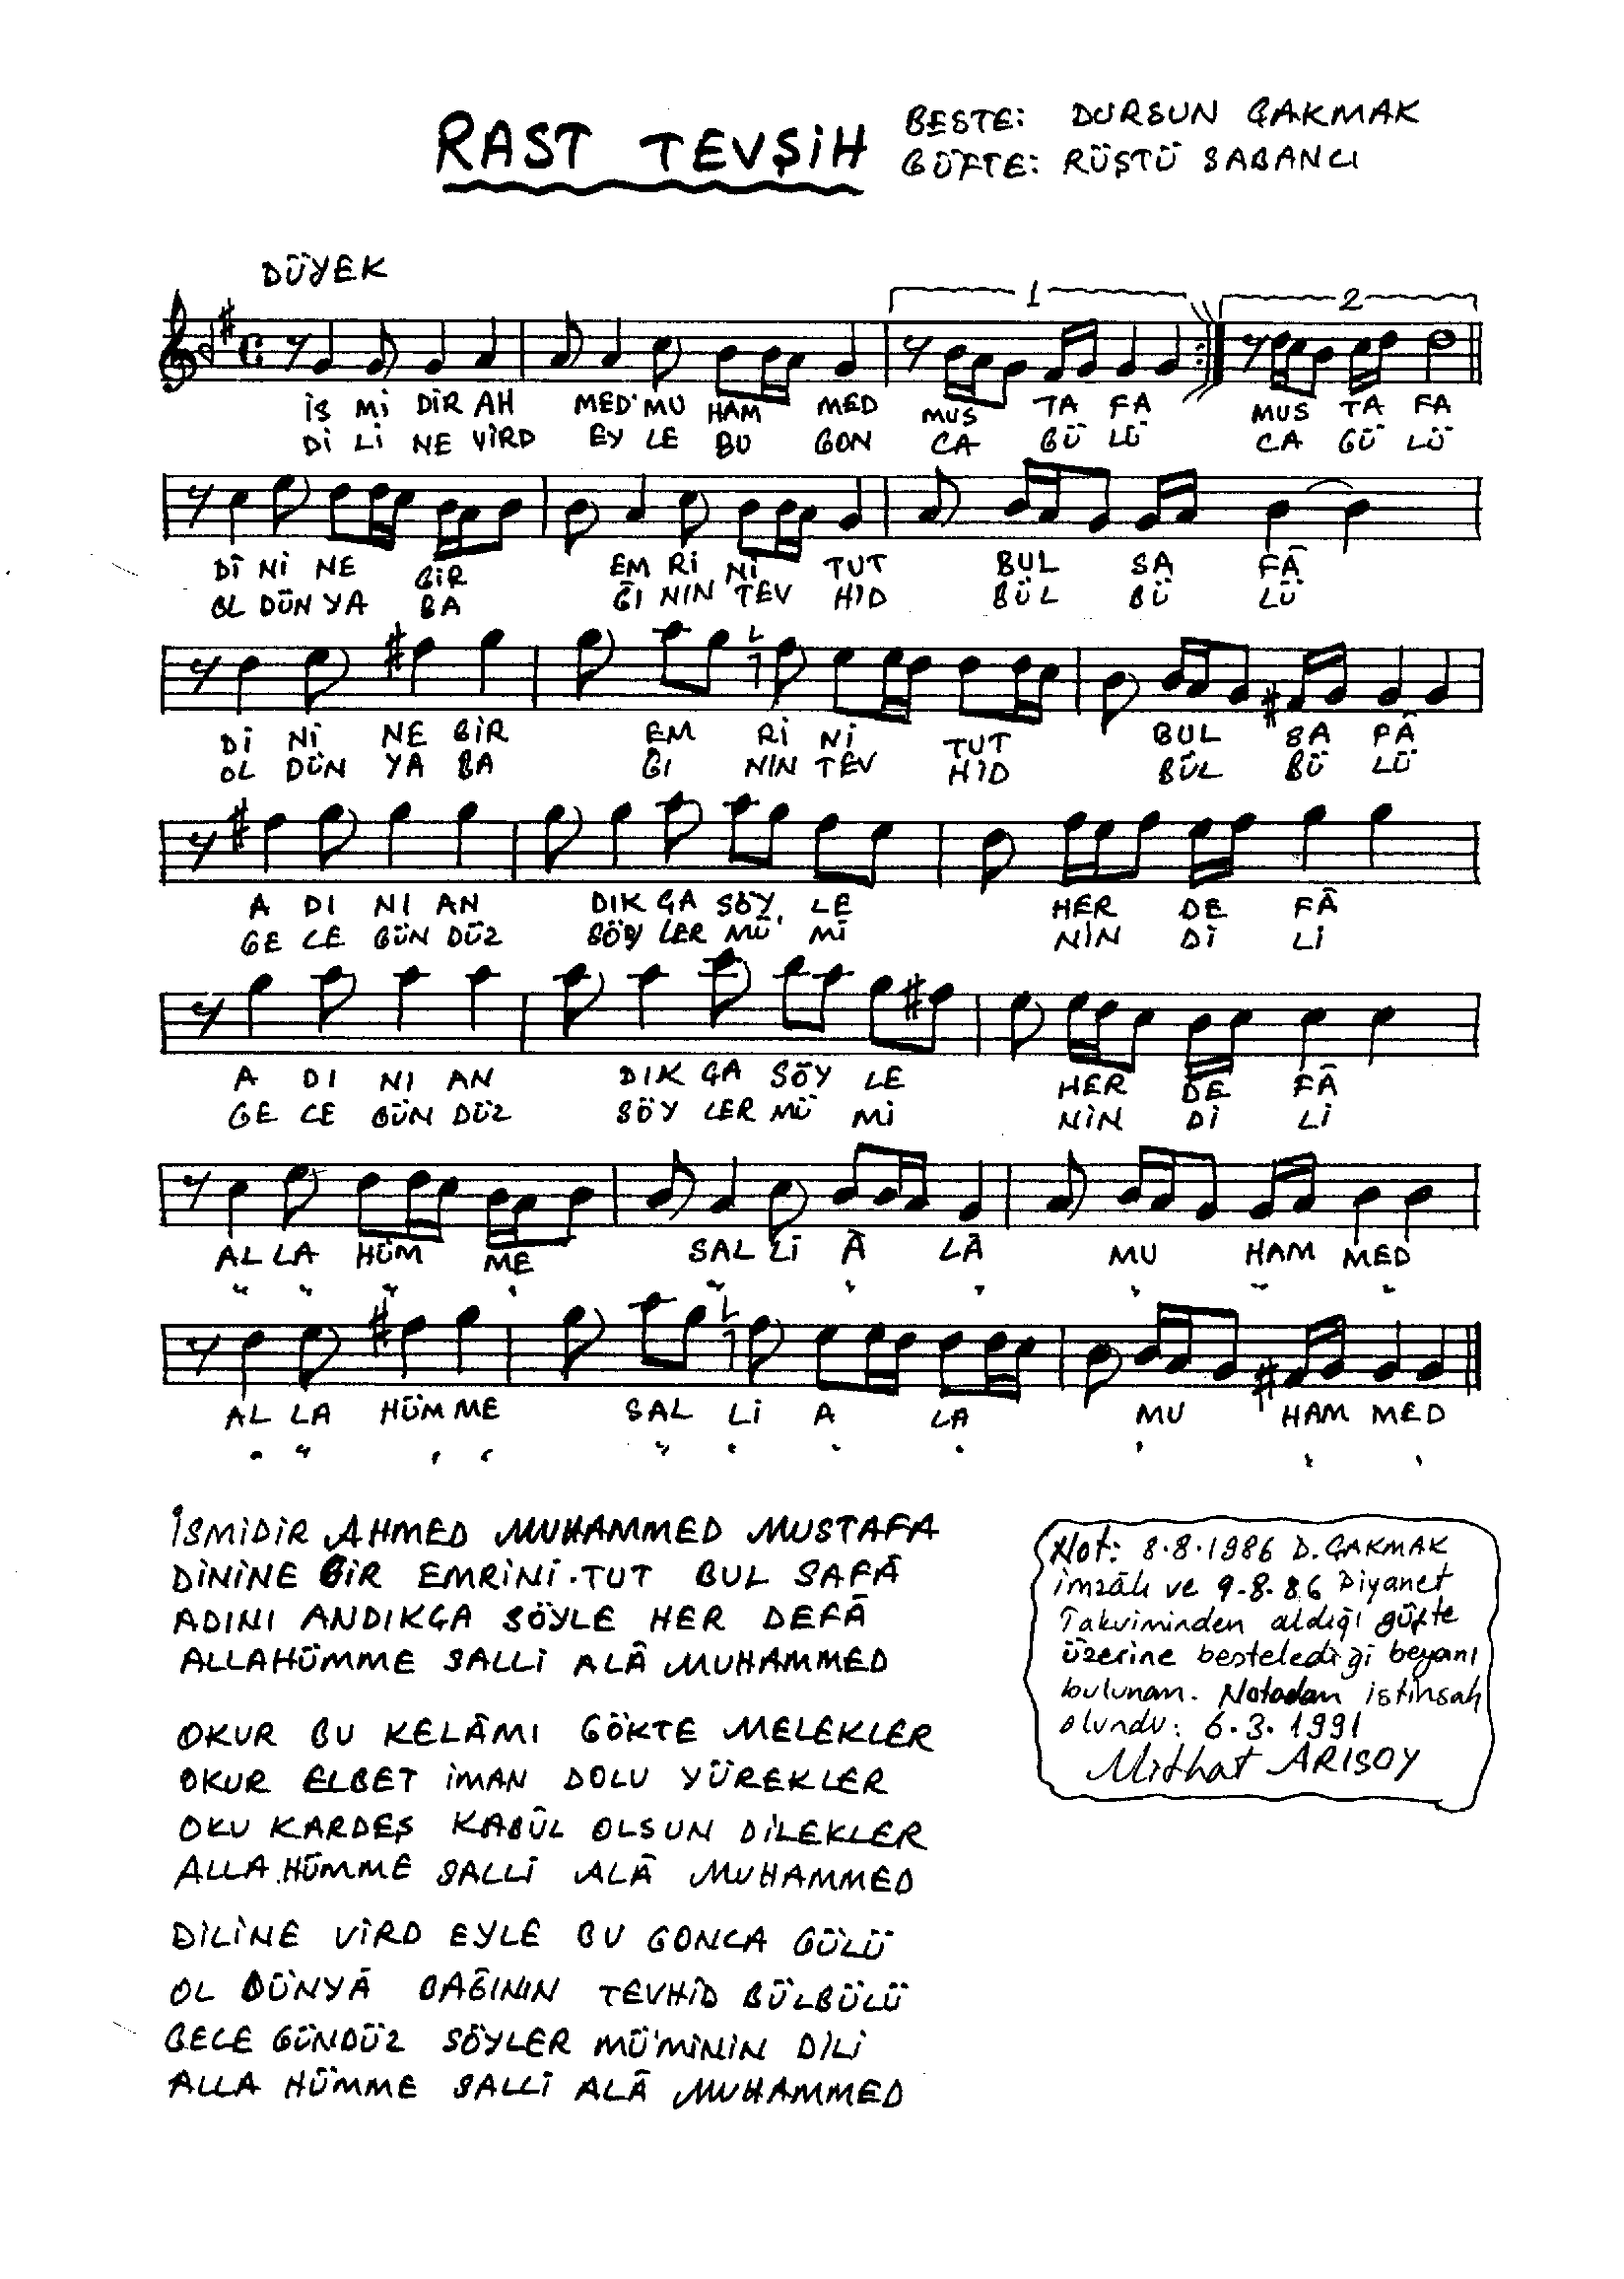 RAST TEVŞİH
BESTE: DURSUN ÇAKMAK
GÜFTE: RÜŞTÜ SABANCI
DÜYEK
1 2
İS Mİ DİR AH MED MU HAM MED MUS TA FA MUS TA FA
Dİ Lİ NE VİRD EY LE BU GON CA GÜ LÜ CA GÜ LÜ
Dİ Nİ NE BİR EM Rİ Nİ TUT BUL SA FÂ
OL DÜN YA BA ĞI NIN TEV HİD BÜL BÜ LÜ
Dİ Nİ NE BİR EM Rİ Nİ TUT BUL SA FÂ
OL DÜN YA BA ĞI NIN TEV HİD BÜL BÜ LÜ
A DI NI AN DIK ÇA SÖY LE HER DE FÂ
GE CE GÜN DÜZ SÖY LER MÜ' Mİ NİN Dİ Lİ
A DI NI AN DIK ÇA SÖY LE HER DE FÂ
GE CE GÜN DÜZ SÖY LER MÜ Mİ NİN Dİ Lİ
AL LA HÜM ME SAL Lİ A LÂ MU HAM MED
AL LA HÜM ME SAL Lİ A LA MU HAM MED
İSMİDİR AHMED MUHAMMED MUSTAFA
DİNİNE BİR EMRİNİ TUT BUL SAFÂ
ADINI ANDIKÇA SÖYLE HER DEFÂ
ALLAHÜMME SALLİ ALÂ MUHAMMED
OKUR BU KELÂMI GÖKTE MELEKLER
OKUR ELBET İMAN DOLU YÜREKLER
OKU KARDEŞ KABÛL OLSUN DİLEKLER
ALLA HÜMME SALLİ ALÂ MUHAMMED
DİLİNE VİRD EYLE BU GONCA GÜLÜ
OL DÜNYÂ BAĞININ TEVHİD BÜLBÜLÜ
GECE GÜNDÜZ SÖYLER MÜ'MİNİN DİLİ
ALLA HÜMME SALLİ ALÂ MUHAMMED
Not: 8.8.1986 D. ÇAKMAK
imzâlı ve 9.8.86 Diyanet
Takviminden aldığı güfte
üzerine bestelediği beyanı
bulunan. Notadan istinsah
olundu: 6.3.1991
Mithat ARISOY